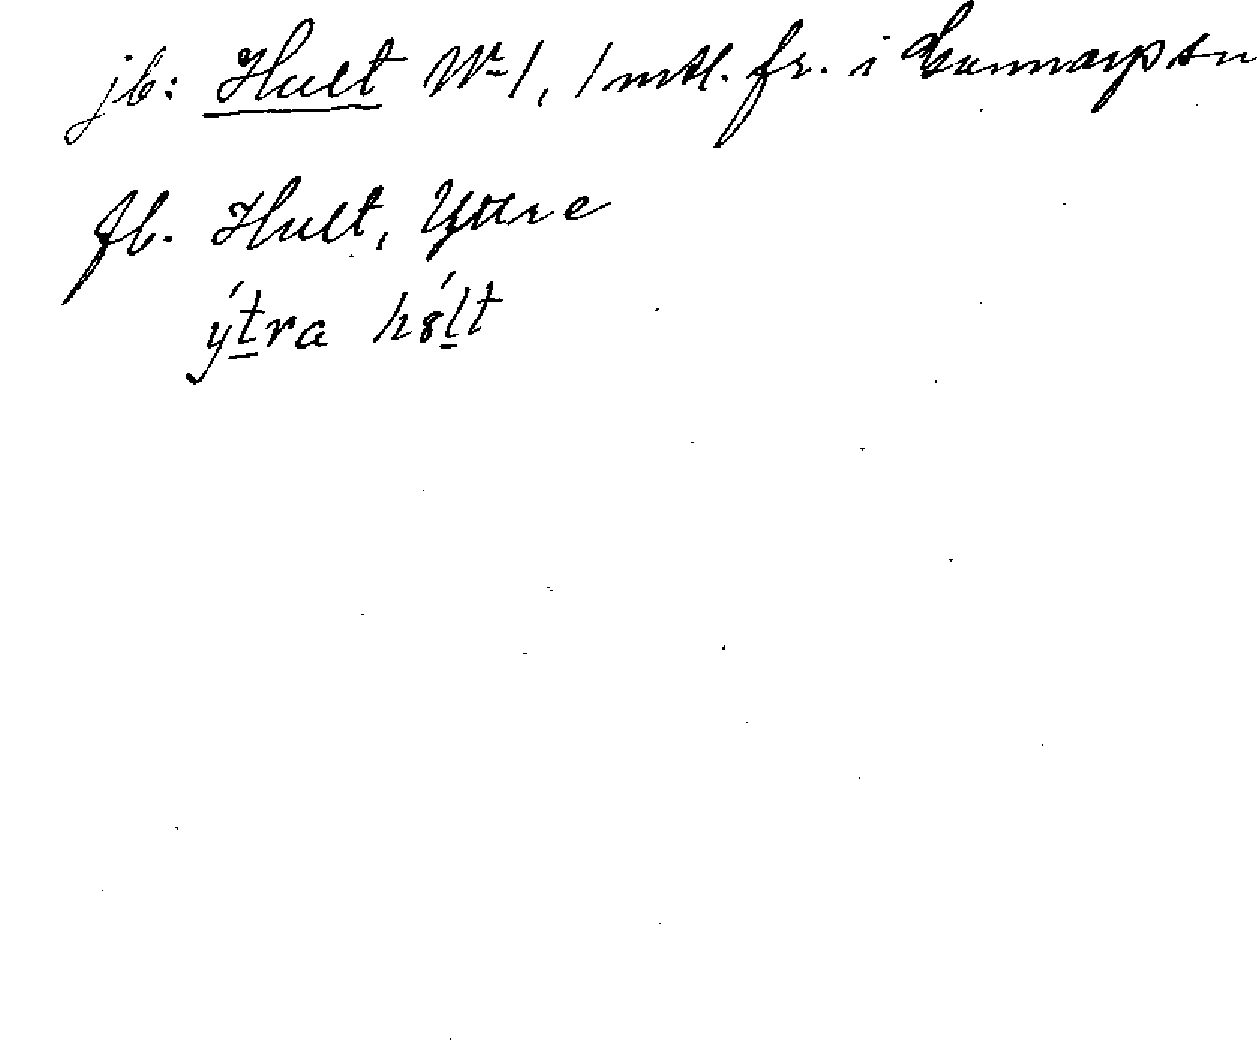 jb: Hult No 1, 1 mtl. fr. i Gunnarp sn
fb. Hult, Yttre
ýtra hȣ́lt